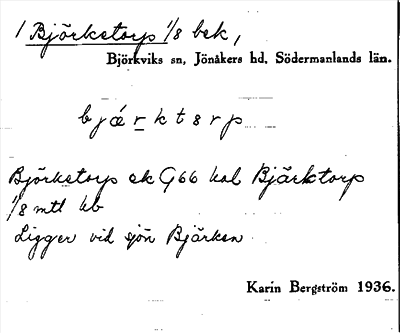 1 Björketorp 1/8 bek,
Björkviks sn, Jönåkers hd, Södermanlands län.
b j ǽ r k t s r p
Björketorp ek G66 kal Bjärktorp
1/8 mtl kb
Ligger vid sjön Bjärken
Karin Bergström 1936.